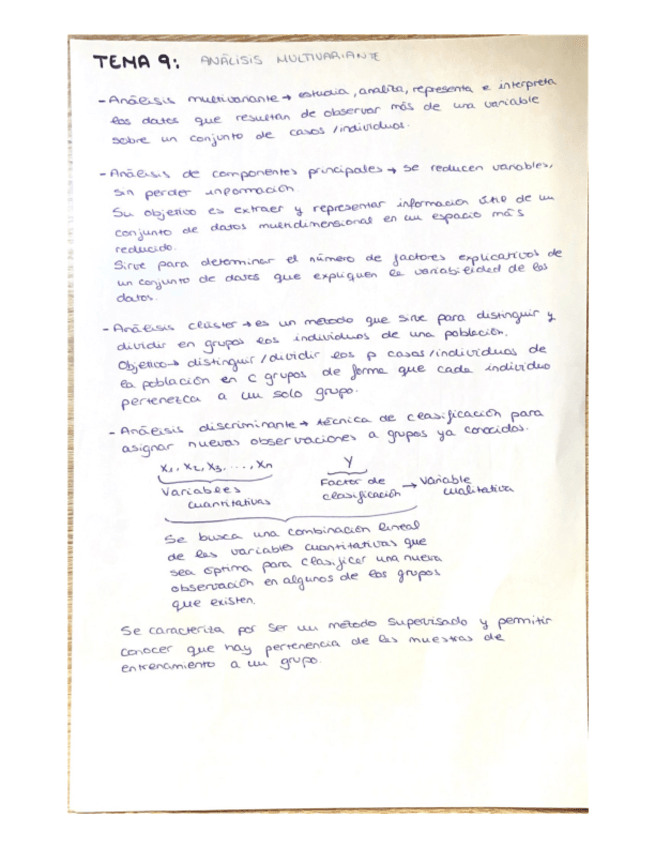 TEMA 9: ANÁLISIS MULTIVARIANTE
- Análisis multivariante → estudia, analiza, representa e interpreta
los datos que resultan de observar más de una variable
sobre un conjunto de casos/individuos.
- Análisis de componentes principales → se reducen variables,
sin perder información
Su objetivo es extraer y representar información útil de un
conjunto de datos multidimensional en un espacio más
reducido.
Sirve para determinar el número de factores explicativos de
un conjunto de datos que expliquen la variabilidad de los
datos.
- Análisis clúster → es un método que sirve para distinguir y
dividir en grupos los individuos de una población.
Objetivo → distinguir/dividir los p casos/individuos de
la población en c grupos de forma que cada individuo
pertenezca a un solo grupo.
- Análisis discriminante → técnica de clasificación para
asignar nuevas observaciones a grupos ya conocidos.
X1, X2, X3, ..., Xn Y
Variables Factor de → Variable
cuantitativas clasificación cualitativa
Se busca una combinación lineal
de las variables cuantitativas que
sea óptima para clasificar una nueva
observación en algunos de los grupos
que existen.
Se caracteriza por ser un método supervisado y permitir
conocer que hay pertenencia de las muestras de
entrenamiento a un grupo.